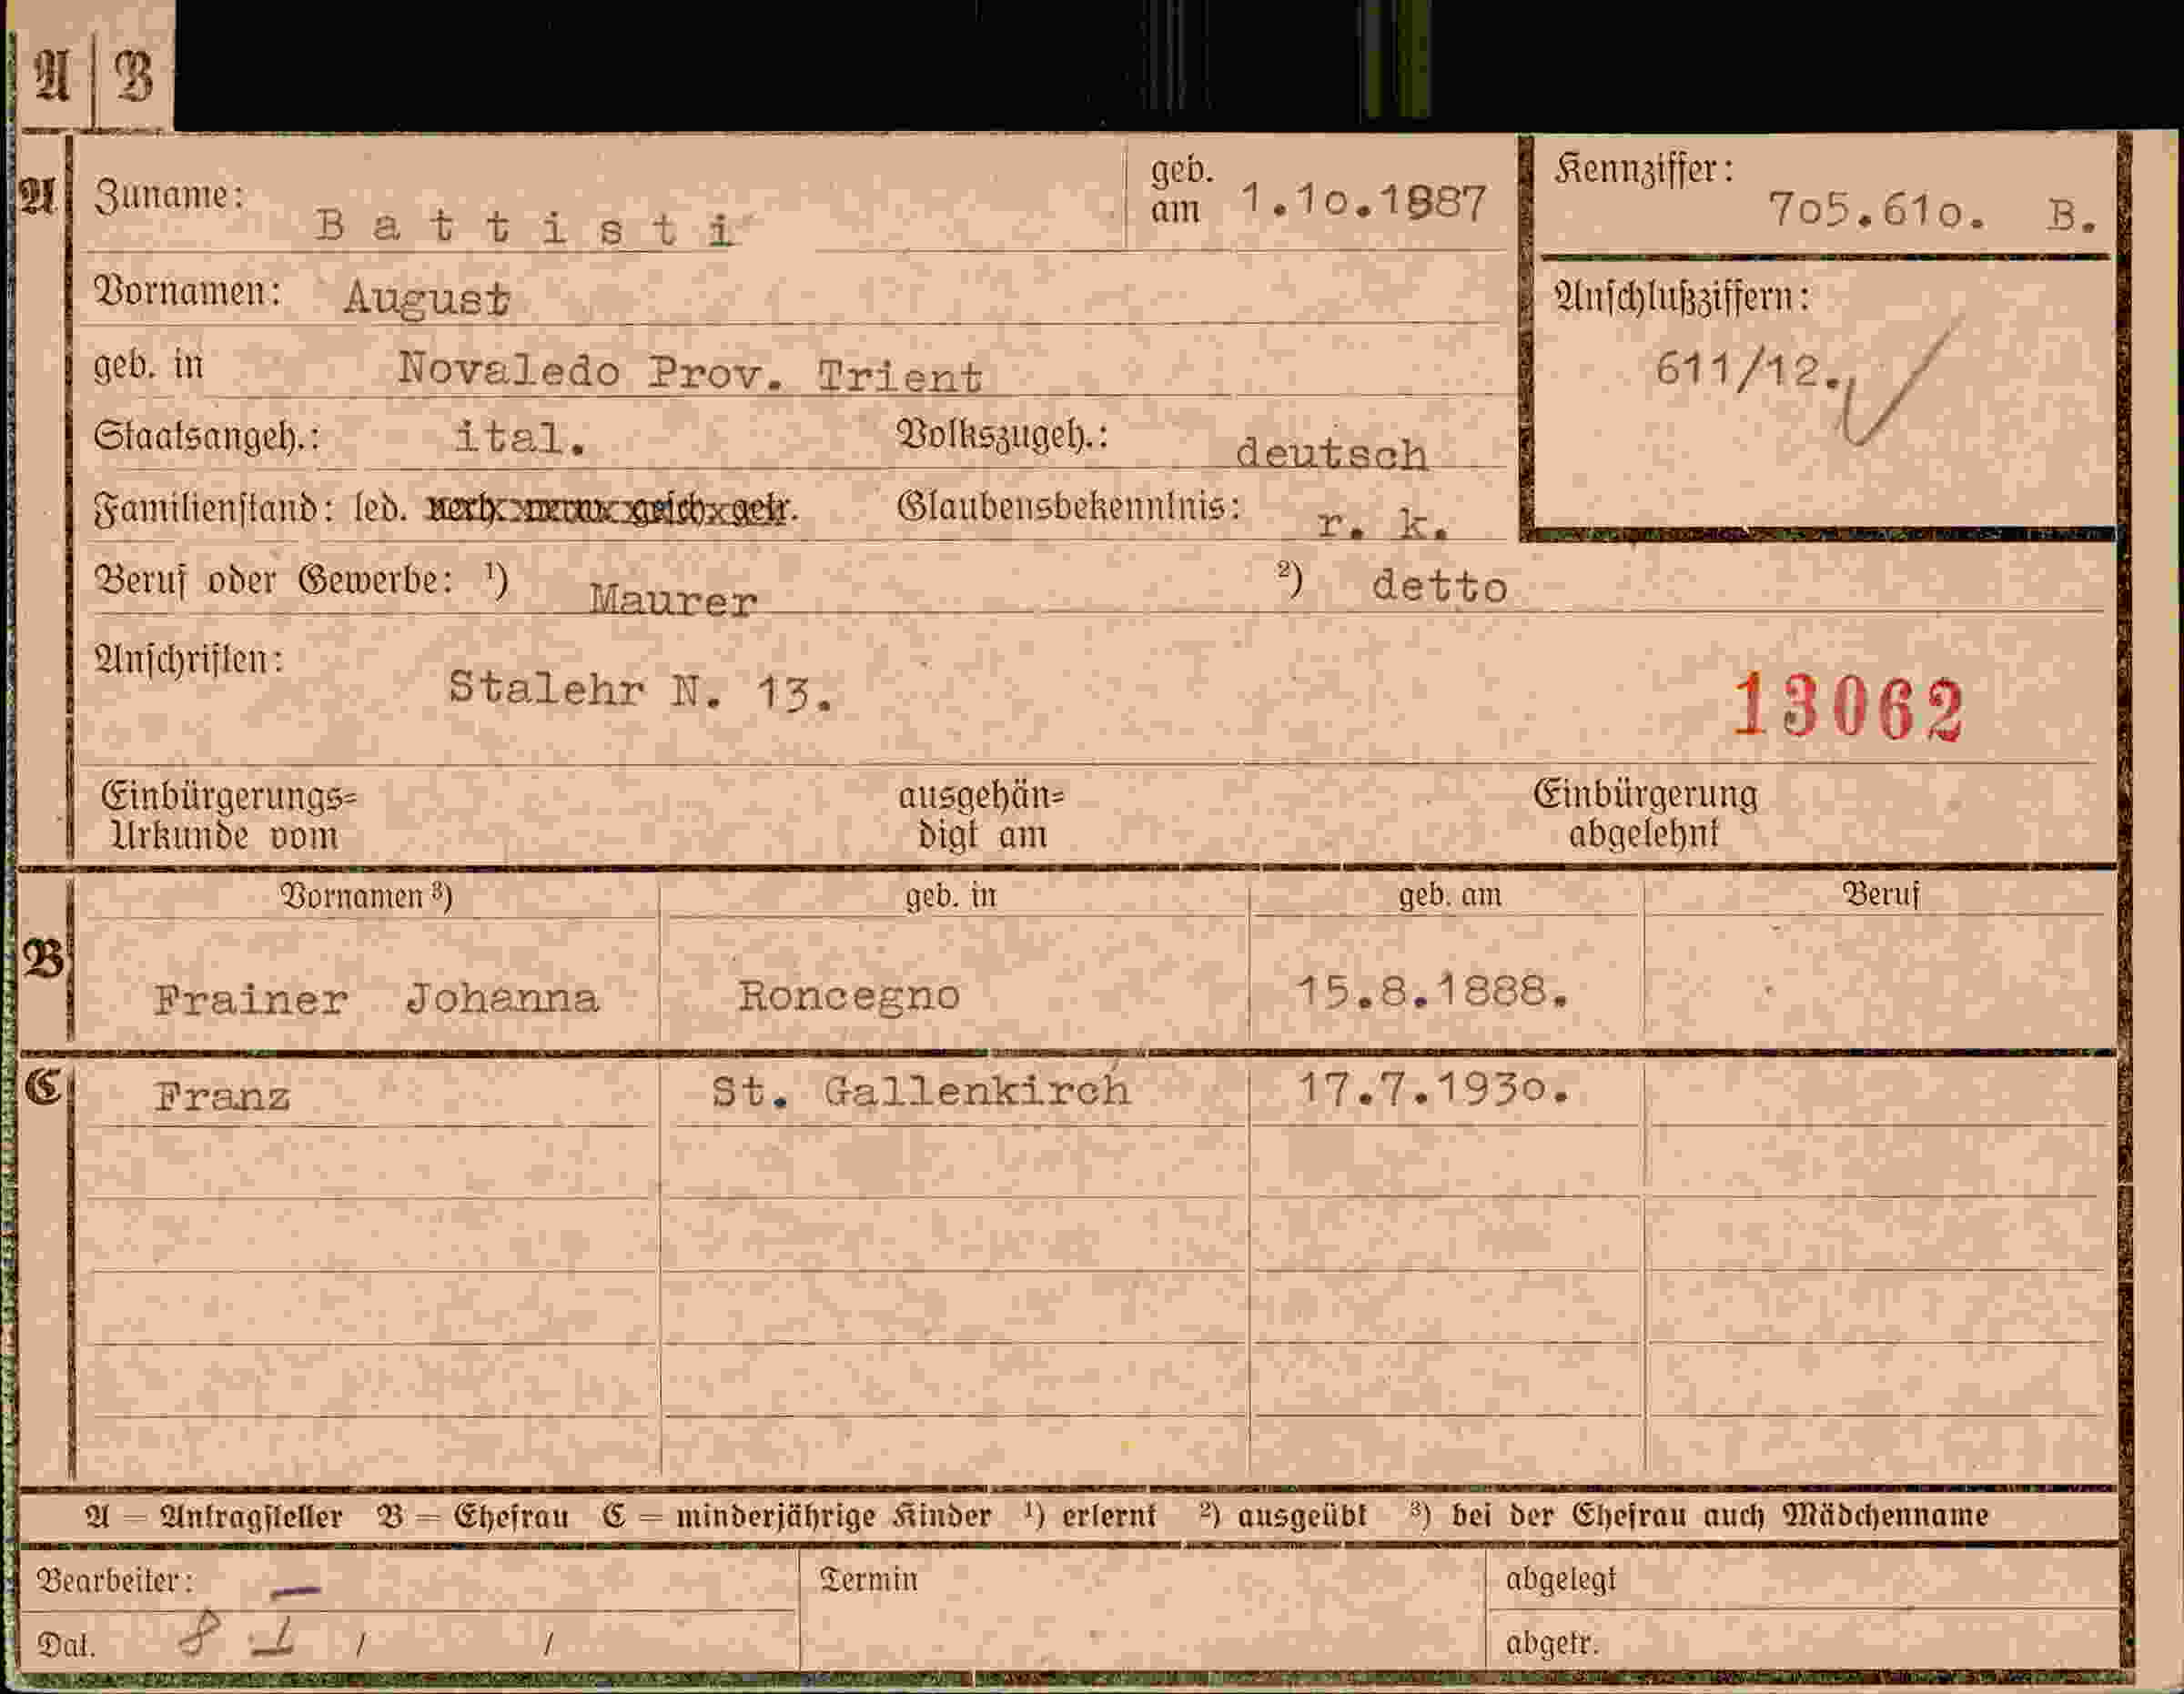 A | B
A
Zuname: Battisti geb. am 1.10.1887
Kennziffer: 705.610. B.
Vornamen: August
Anschlußziffern:
611/12.
geb. in Novaledo Prov. Trient
Staatsangeh.: ital. Volkszugeh.: deutsch
Familienstand: led. verh. verw. gesch. getr. Glaubensbekenntnis: r. k.
Beruf oder Gewerbe: ¹) Maurer ²) detto
Anschriften: Stalehr N. 13.
13062
Einbürgerungs=
Urkunde vom
ausgehän=
digt am
Einbürgerung
abgelehnt
Vornamen ³) geb. in geb. am Beruf
B
Frainer Johanna Roncegno 15.8.1888.
C
Franz St. Gallenkirch 17.7.1930.
A = Antragsteller B = Ehefrau C = minderjährige Kinder ¹) erlernt ²) ausgeübt ³) bei der Ehefrau auch Mädchenname
Bearbeiter: Termin abgelegt
Dat. 8 I / / abgetr.